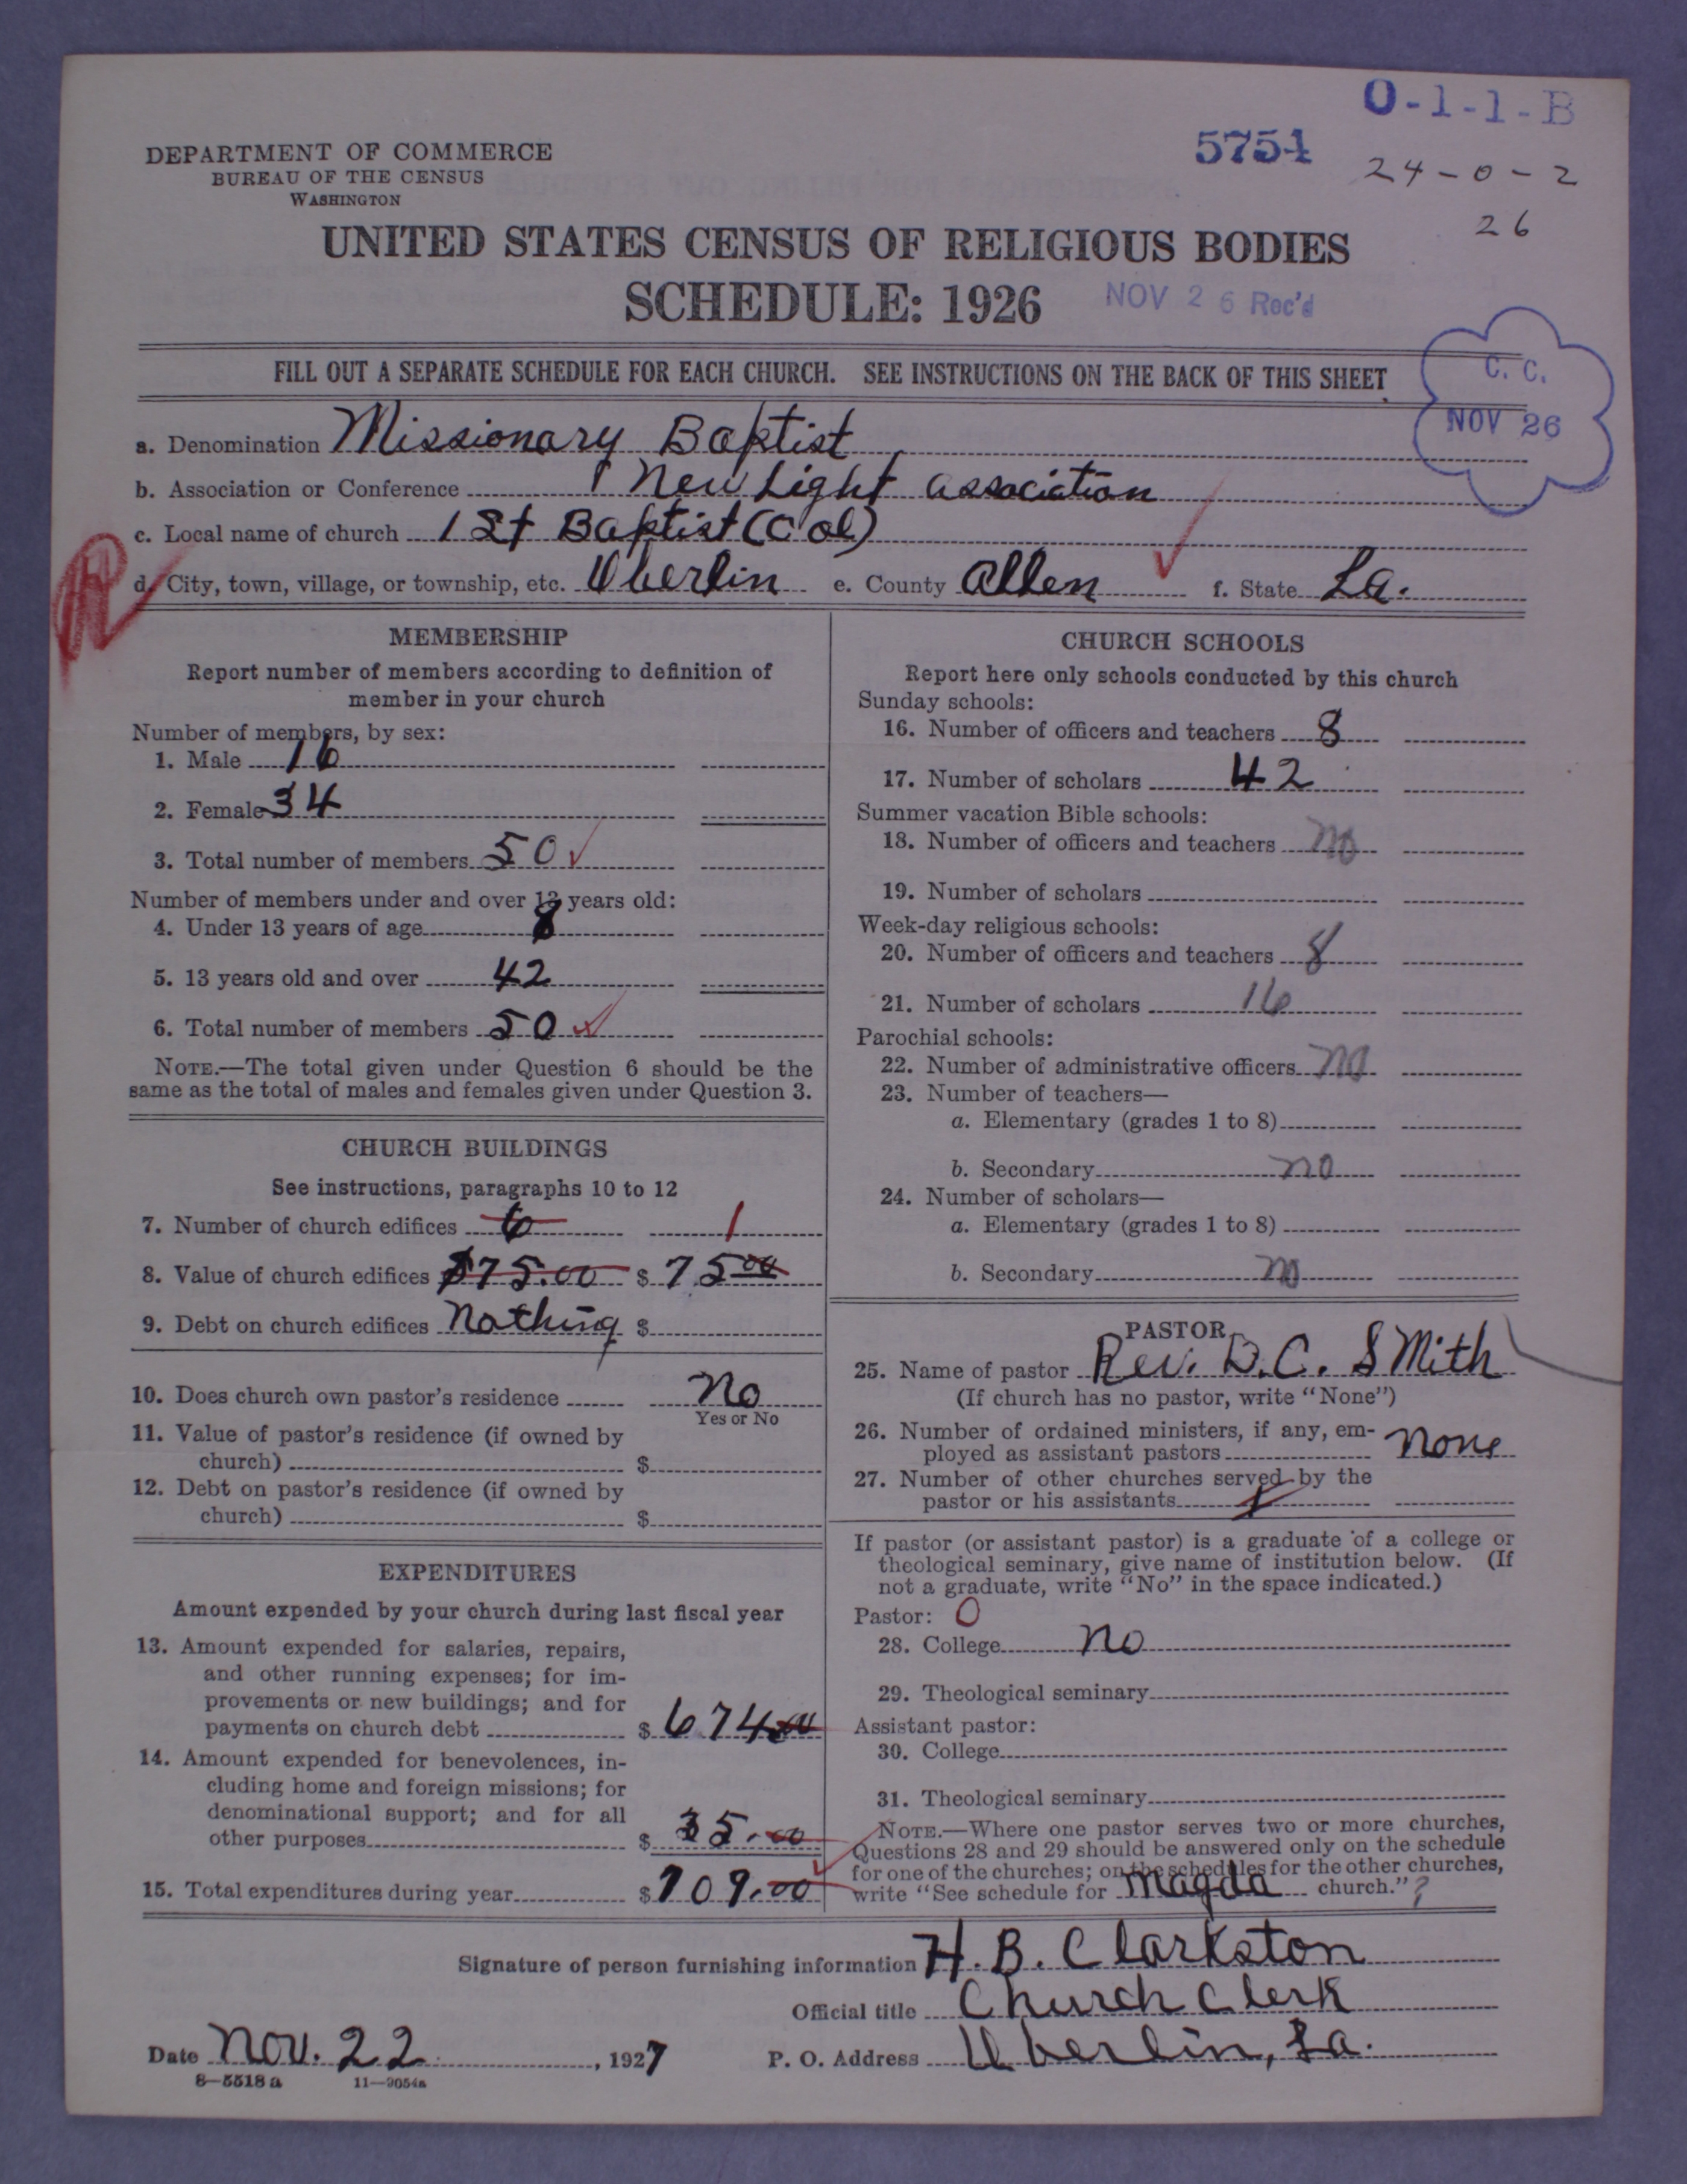 O-1-1-B
5754
24-0-2
26
DEPARTMENT OF COMMERCE
BUREAU OF THE CENSUS
WASHINGTON
UNITED STATES CENSUS OF RELIGIOUS BODIES
SCHEDULE: 1926
NOV 26 Rec'd
FILL OUT A SEPARATE SCHEDULE FOR EACH CHURCH. SEE INSTRUCTIONS ON THE BACK OF THIS SHEET
C. C.
NOV 26
a. Denomination Missionary Baptist
b. Association or Conference New Light association
c. Local name of church 1st Baptist (Col)
d. City, town, village, or township, etc. Oberlin e. County Allen f. State La.
MEMBERSHIP
Report number of members according to definition of
member in your church
Number of members, by sex:
1. Male 16
2. Female 34
3. Total number of members 50
Number of members under and over 13 years old:
4. Under 13 years of age 8
5. 13 years old and over 42
6. Total number of members 50
NOTE.—The total given under Question 6 should be the
same as the total of males and females given under Question 3.
CHURCH BUILDINGS
See instructions, paragraphs 10 to 12
7. Number of church edifices 6 1
8. Value of church edifices $75.00 $ 75 00
9. Debt on church edifices Nothing $
10. Does church own pastor's residence No
Yes or No
11. Value of pastor's residence (if owned by
church) $
12. Debt on pastor's residence (if owned by
church) $
EXPENDITURES
Amount expended by your church during last fiscal year
13. Amount expended for salaries, repairs,
and other running expenses; for im-
provements or new buildings; and for
payments on church debt $ 674.00
14. Amount expended for benevolences, in-
cluding home and foreign missions; for
denominational support; and for all
other purposes $ 35.00
15. Total expenditures during year $ 709.00
CHURCH SCHOOLS
Report here only schools conducted by this church
Sunday schools:
16. Number of officers and teachers 8
17. Number of scholars 42
Summer vacation Bible schools:
18. Number of officers and teachers no
19. Number of scholars
Week-day religious schools:
20. Number of officers and teachers 8
21. Number of scholars 16
Parochial schools:
22. Number of administrative officers no
23. Number of teachers—
a. Elementary (grades 1 to 8)
b. Secondary no
24. Number of scholars—
a. Elementary (grades 1 to 8)
b. Secondary no
PASTOR
25. Name of pastor Rev. D.C. SMith
(If church has no pastor, write "None")
26. Number of ordained ministers, if any, em-
ployed as assistant pastors none
27. Number of other churches served by the
pastor or his assistants 1
If pastor (or assistant pastor) is a graduate of a college or
theological seminary, give name of institution below. (If
not a graduate, write "No" in the space indicated.)
Pastor: 0
28. College no
29. Theological seminary
Assistant pastor:
30. College
31. Theological seminary
NOTE.—Where one pastor serves two or more churches,
Questions 28 and 29 should be answered only on the schedule
for one of the churches; on the schedules for the other churches,
write "See schedule for Magda church." ?
Signature of person furnishing information H. B. Clarkston
Official title Church Clerk
Date Nov. 22, 1927 P. O. Address Oberlin, La.
8—5518 a 11—9054a